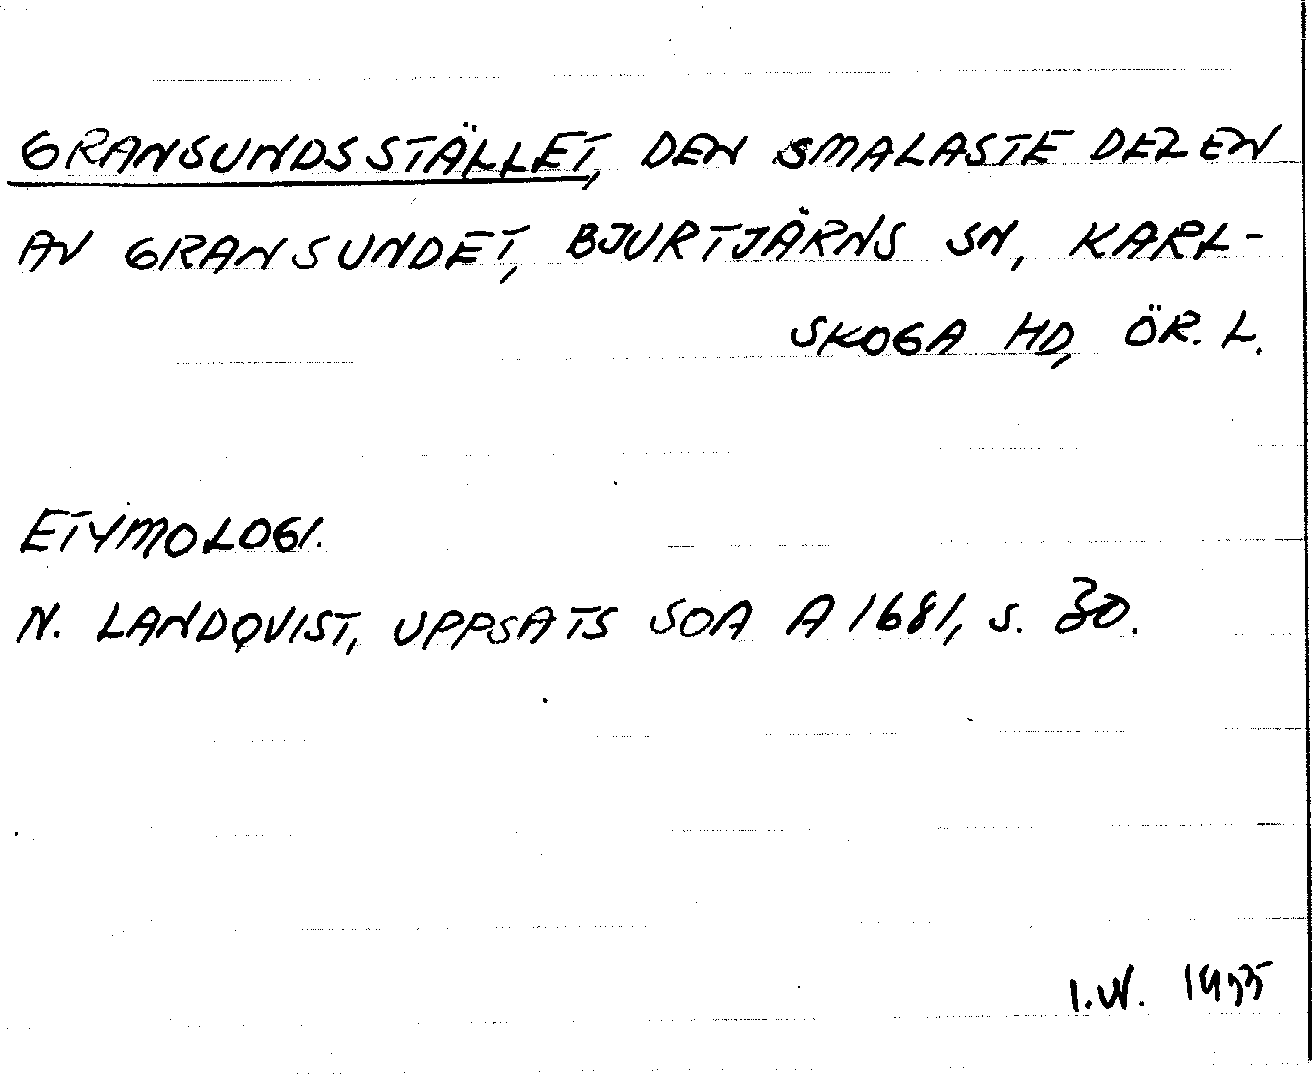 GRANSUNDSSTÄLLET, DEN SMALASTE DELEN
AV GRANSUNDET, BJURTJÄRNS SN, KARL-
SKOGA HD, ÖR. L.
ETYMOLOGI.
N. LANDQVIST, UPPSATS SOA A 1681, S. 30.
I.W.